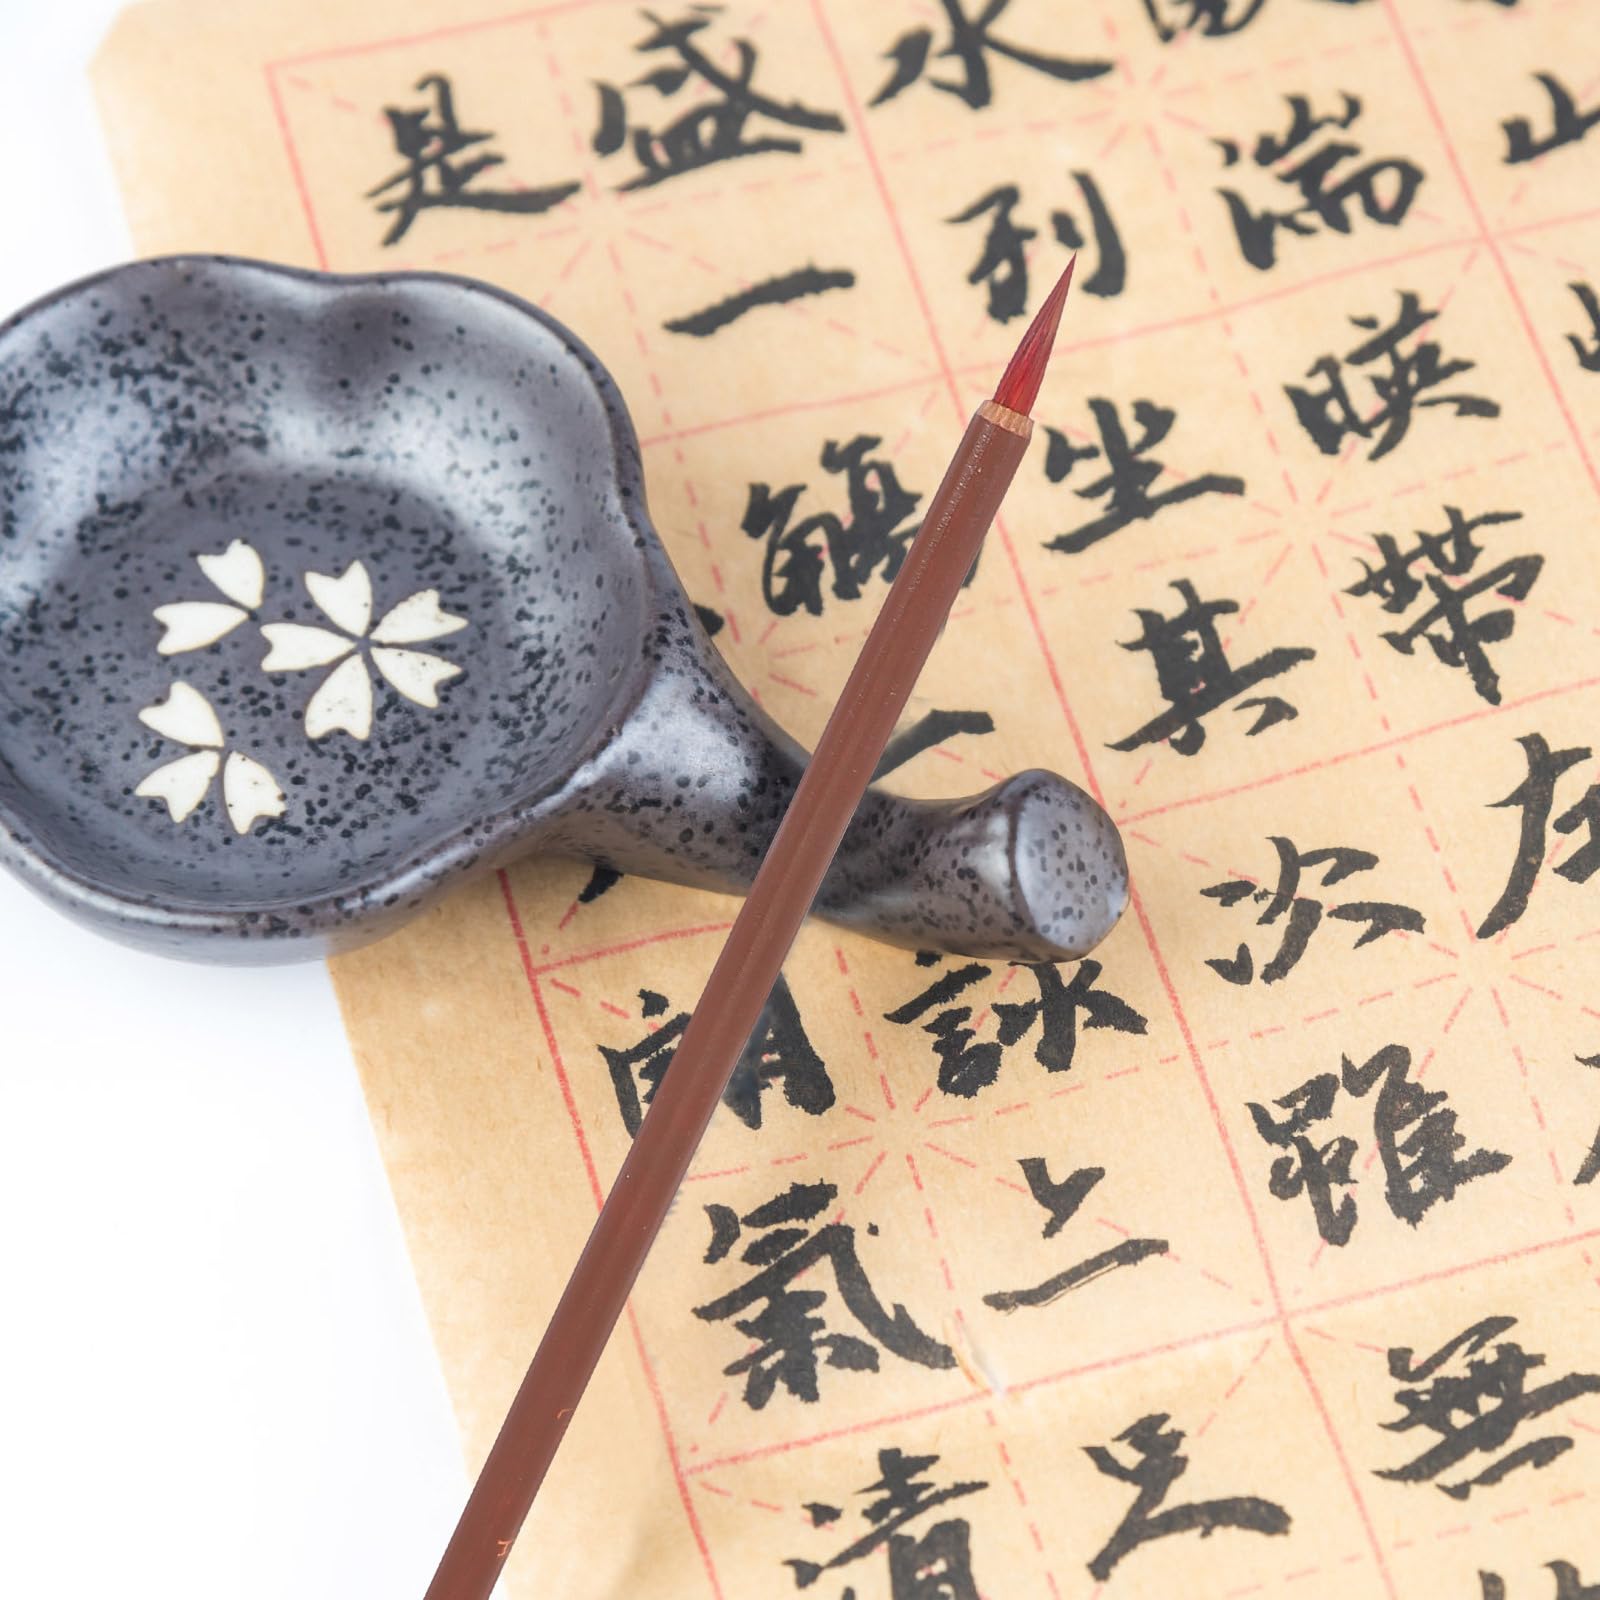 山
湍暎帶左
水列坐其次雖無
盛一觴一詠亦足
是朗氣清